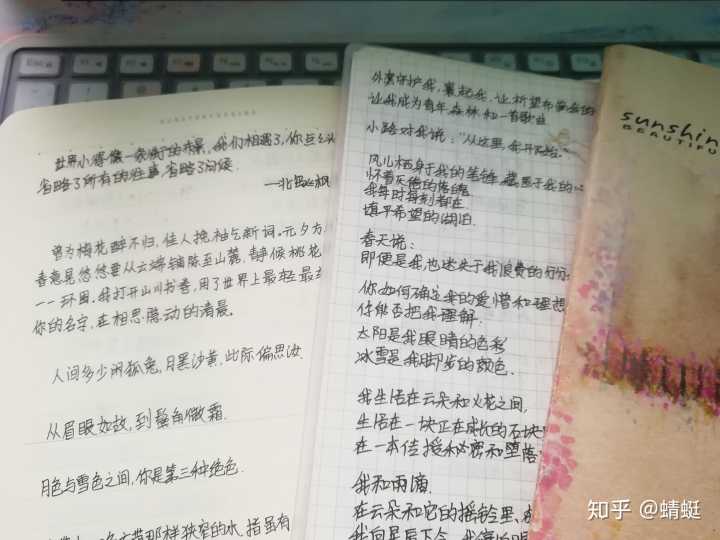 世界小得像一条街的布景,我们相遇了,你点点头
省略了所有的往事,省略了问候.
——北岛
曾为梅花醉不归,佳人挽袖乞新词.元夕方
春意晃悠悠要从云端铺陈至山麓,静候桃花
一一环回.我打开山川书卷,用了世界上最轻最
你的名字,在相思隐动的清晨.
人间多少闲狐兔,月黑沙黄,此际偏思汝.
从眉眼如故,到鬓角微霜.
月色与雪色之间,你是第三种绝色.
那样狭窄的水,指虽有
让我成为青年、森林和一首歌曲
小路对我说:“从这里,我开始.”
风儿栖身于我的笔锋
我每时每刻都在
填平希望的湖泊.
春天说:
即便是我也迷失于我浪费的
你如何确定我的爱憎和理想
你能否把我理解.
太阳是我眼睛的色彩
冰雪是我脚步的颜色.
我生活在云朵和火花之间,
生活在一块正在成长的石块
在一本传授秘密和堕落
我和雨滴
在云朵和它的摇铃里、
sunshin
BEAUTIFU
知乎 @蜻蜓